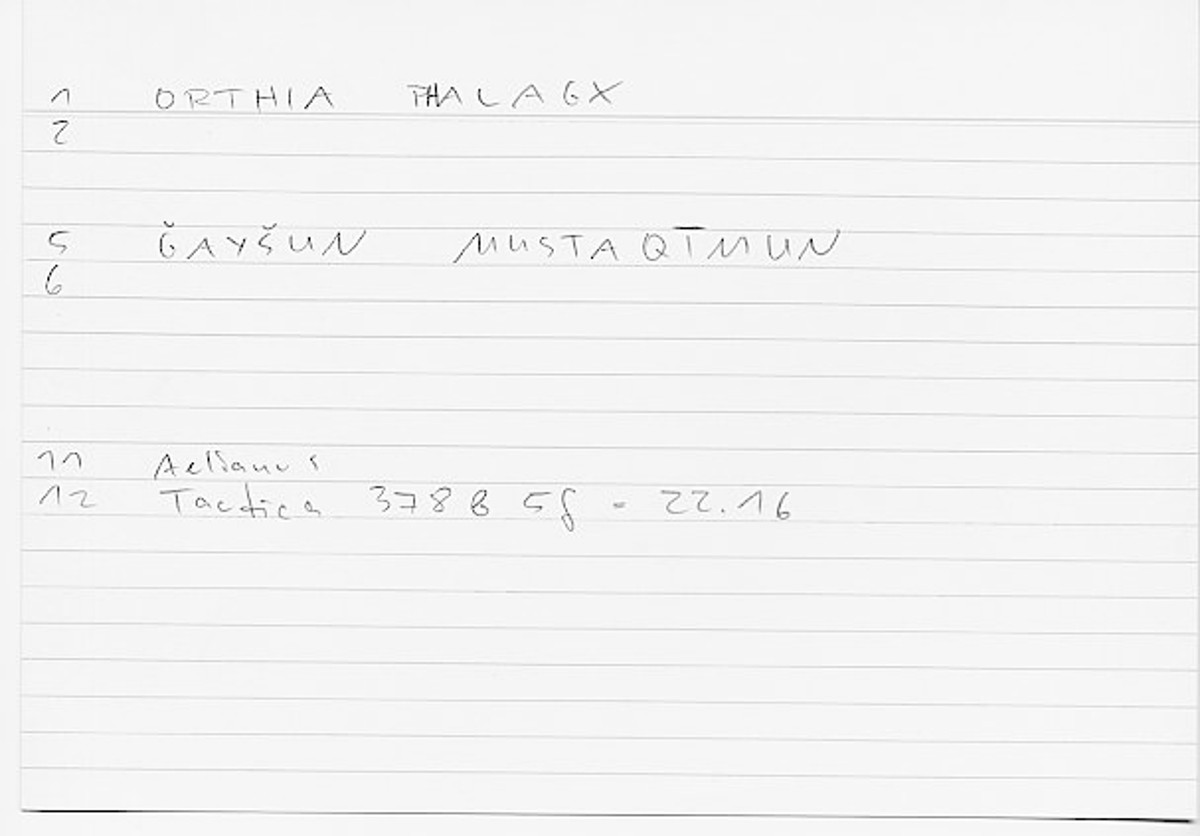 1 ORTHIA PHALAGX
2
5 ǦAYŠUN MUSTAQĪMUN
6
11 Aelianus
12 Tactica 378 B 5f = 22.16